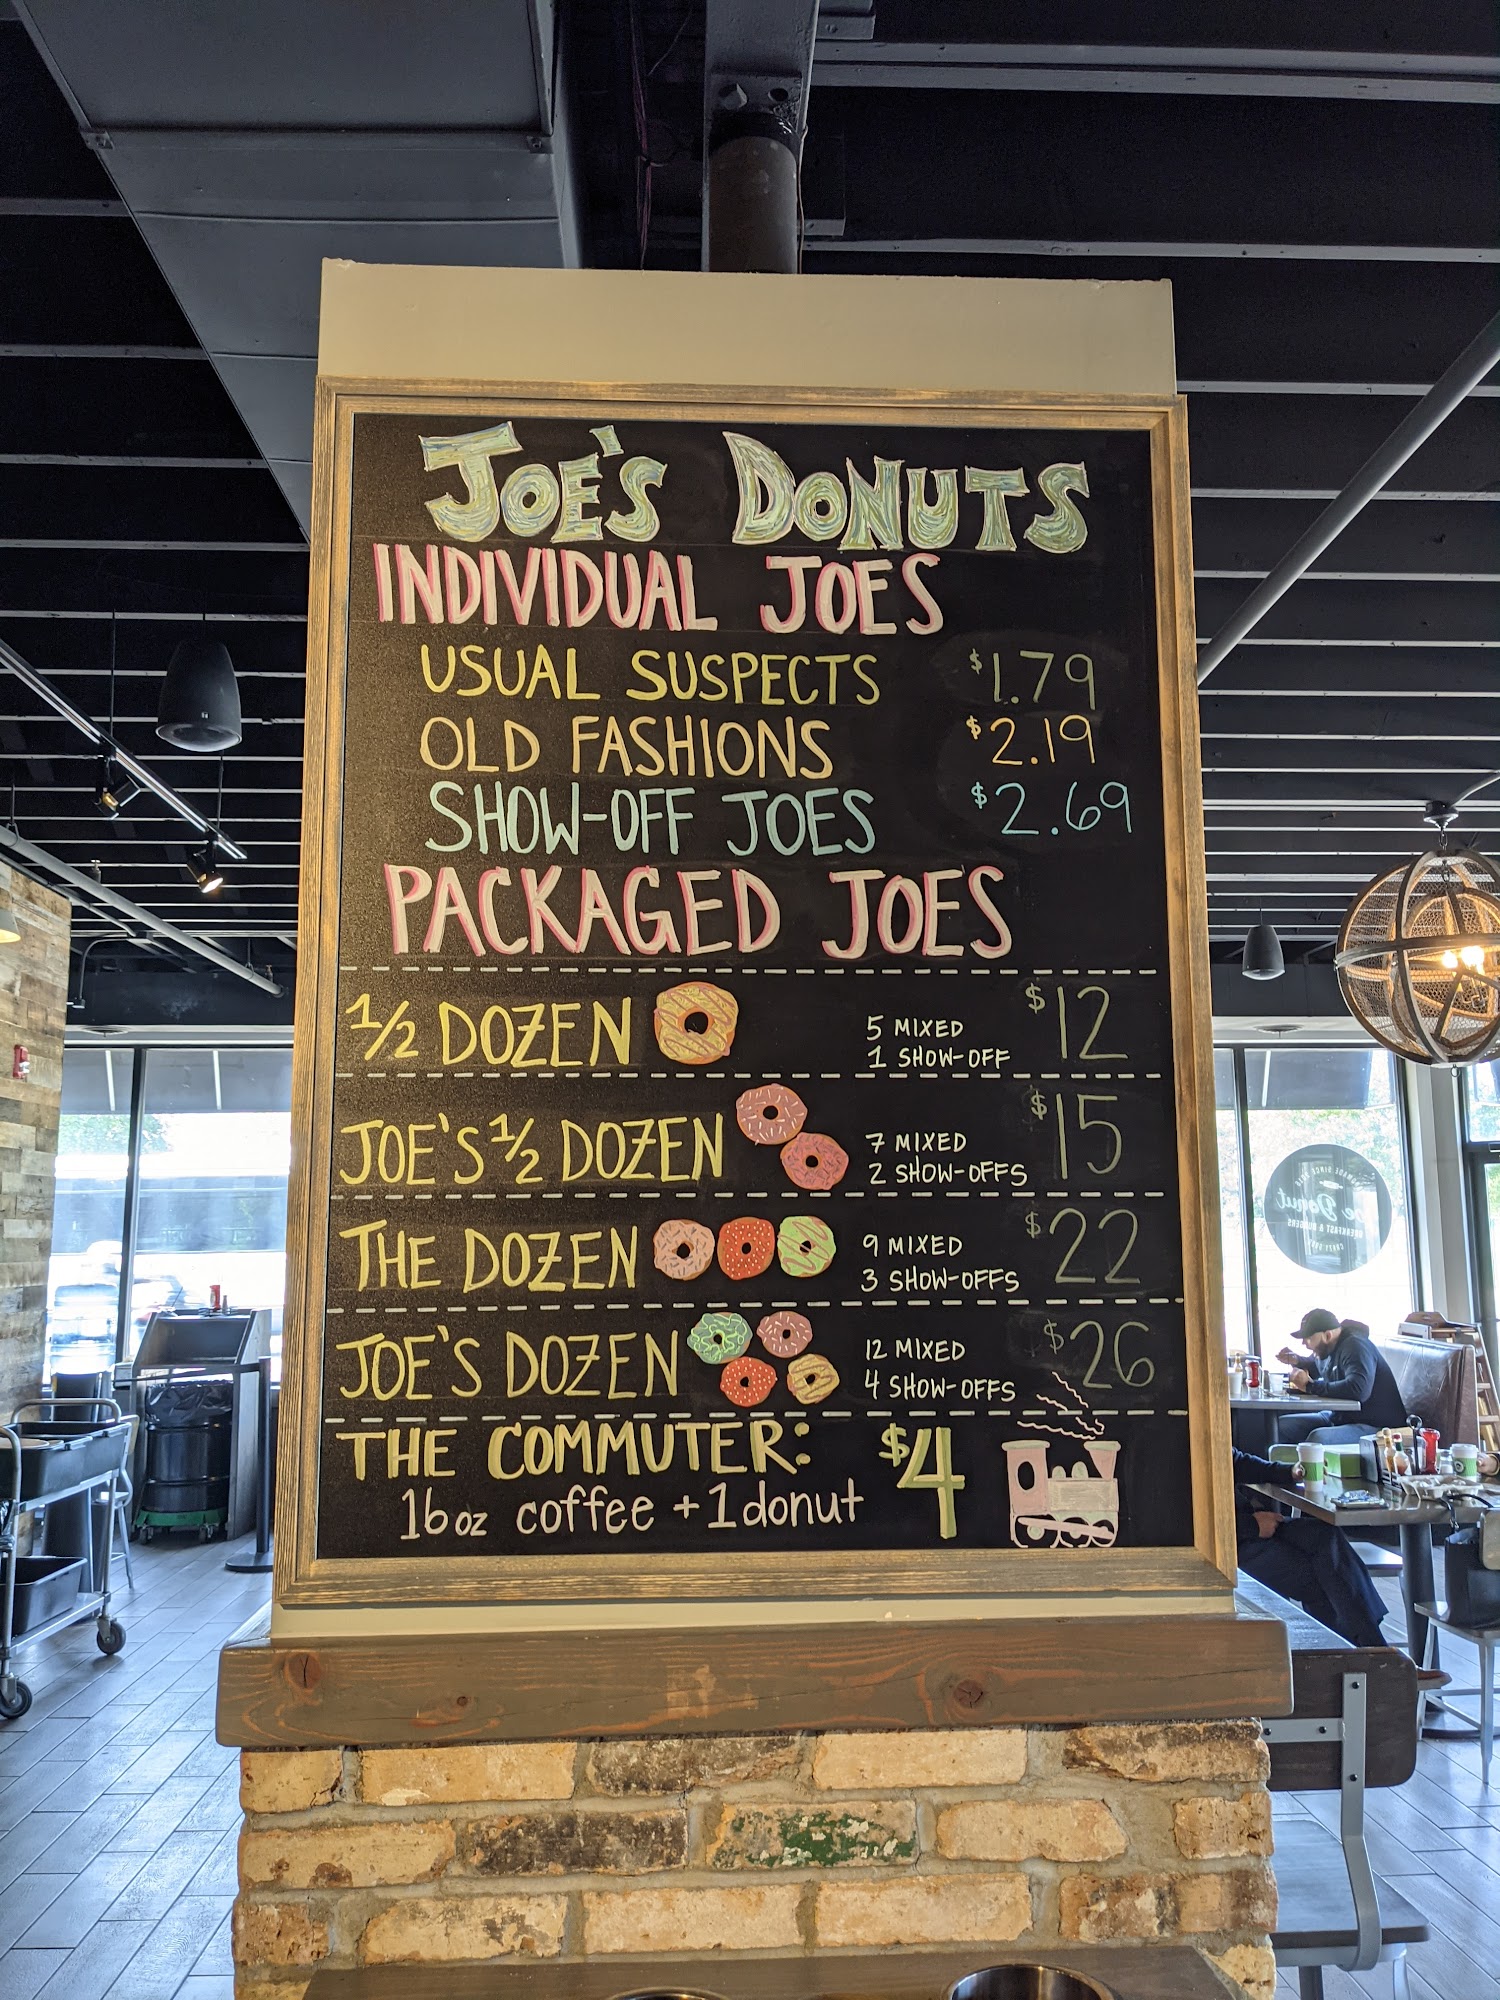 JOE'S DONUTS
INDIVIDUAL JOES
USUAL SUSPECTS $1.79
OLD FASHIONS $2.19
SHOW-OFF JOES $2.69
PACKAGED JOES
1/2 DOZEN 5 MIXED 1 SHOW-OFF $12
JOE'S 1/2 DOZEN 7 MIXED 2 SHOW-OFFS $15
THE DOZEN 9 MIXED 3 SHOW-OFFS $22
JOE'S DOZEN 12 MIXED 4 SHOW-OFFS $26
THE COMMUTER: $4
16oz coffee + 1 donut
Donut
BREAKFAST & BURGERS